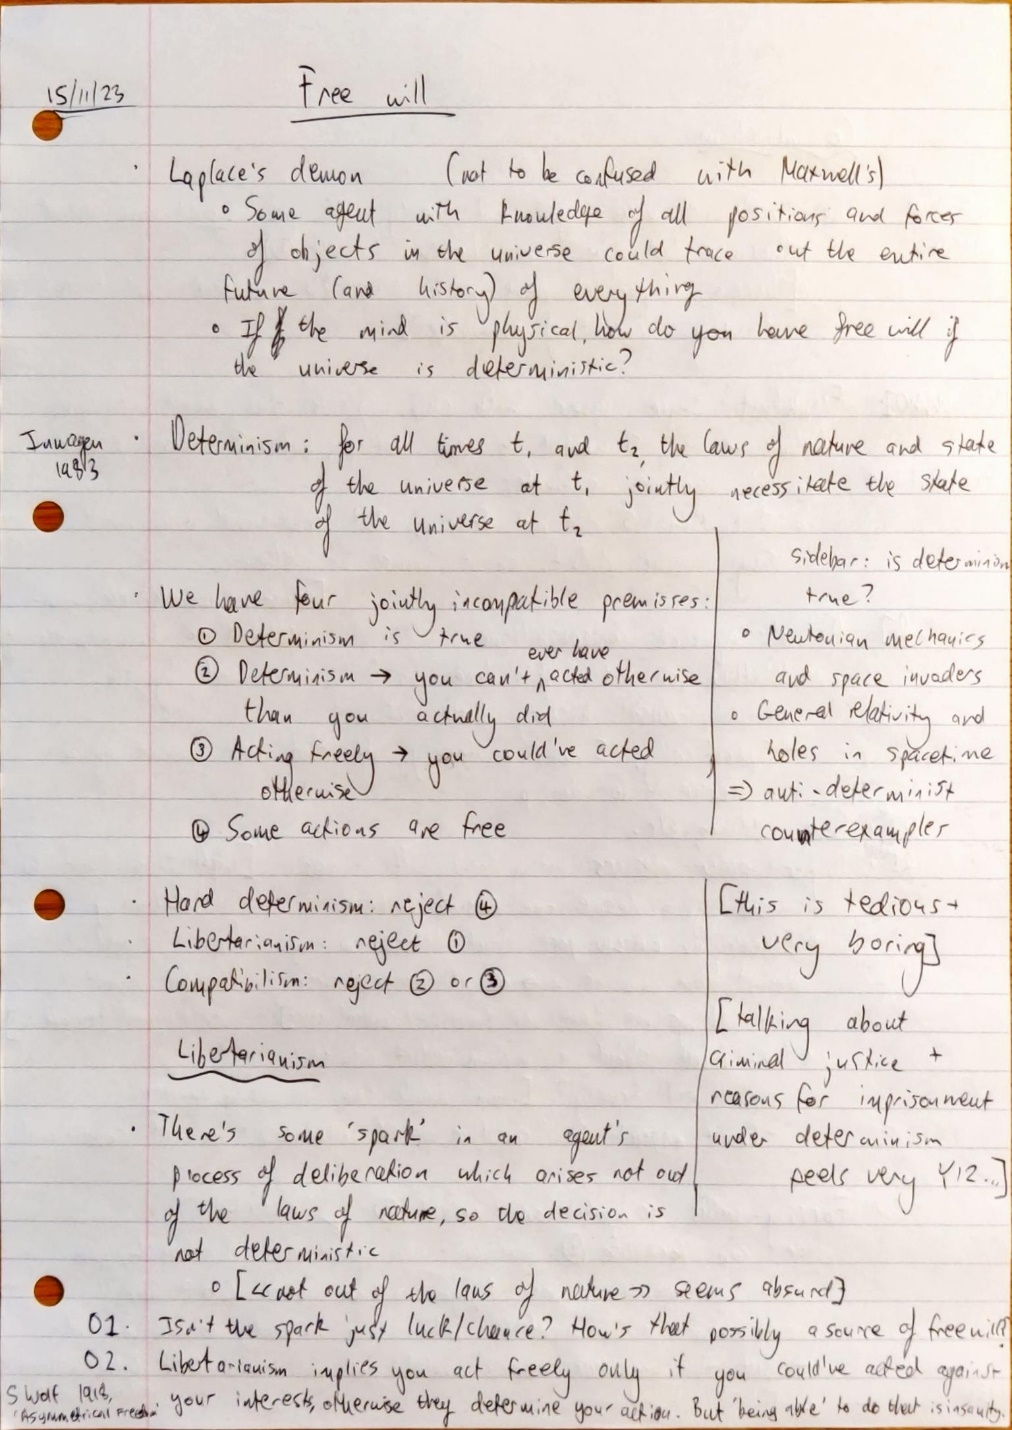 15/11/23
Free will
· Laplace's demon (not to be confused with Maxwell's)
◦ Some agent with knowledge of all positions and forces
of objects in the universe could trace out the entire
future (and history) of everything
◦ If the mind is physical, how do you have free will if
the universe is deterministic?
Inwagen
1983
· Determinism: for all times t₁ and t₂, the laws of nature and state
of the universe at t₁ jointly necessitate the state
of the universe at t₂
· We have four jointly incompatible premisses:
① Determinism is true
② Determinism → you can't ever have acted otherwise
than you actually did
③ Acting freely → you could've acted
otherwise
④ Some actions are free
sidebar: is determinism
true?
◦ Newtonian mechanics
and space invaders
◦ General relativity and
holes in spacetime
⇒ anti-determinist
counterexamples
· Hard determinism: reject ④
· Libertarianism: reject ①
· Compatibilism: reject ② or ③
[this is tedious +
very boring]
[talking about
criminal justice +
reasons for imprisonment
under determinism
feels very Y12...]
Libertarianism
· There's some 'spark' in an agent's
process of deliberation which arises not out
of the laws of nature, so the decision is
not deterministic
◦ [<<not out of the laws of nature>> seems absurd]
O1. Isn't the spark just luck/chance? How's that possibly a source of free will?
O2. Libertarianism implies you act freely only if you could've acted against
your interests, otherwise they determine your action. But 'being able' to do that is insanity.
S Wolf
'Asymmetrical Freedom'